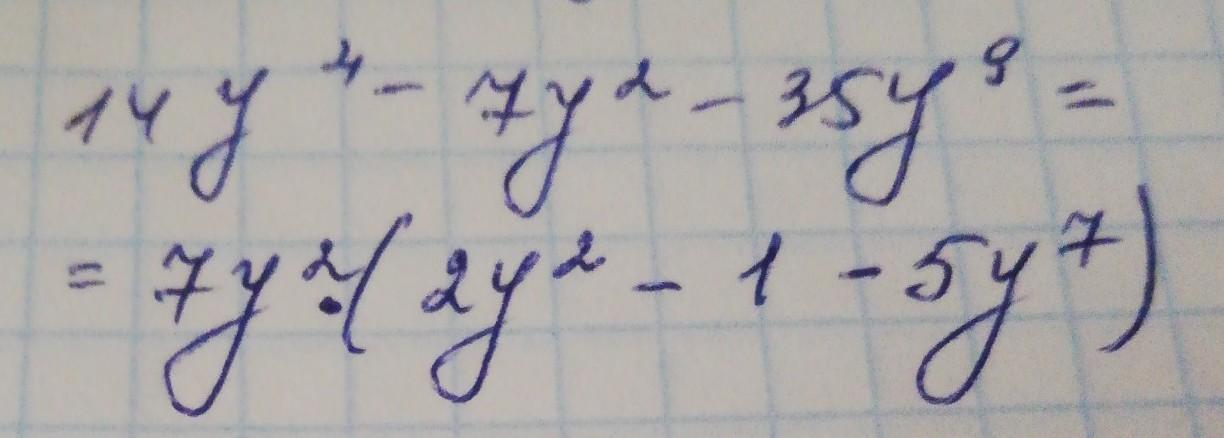 14y⁴ - 7y² - 35y⁹ =
= 7y² · (2y² - 1 - 5y⁷)